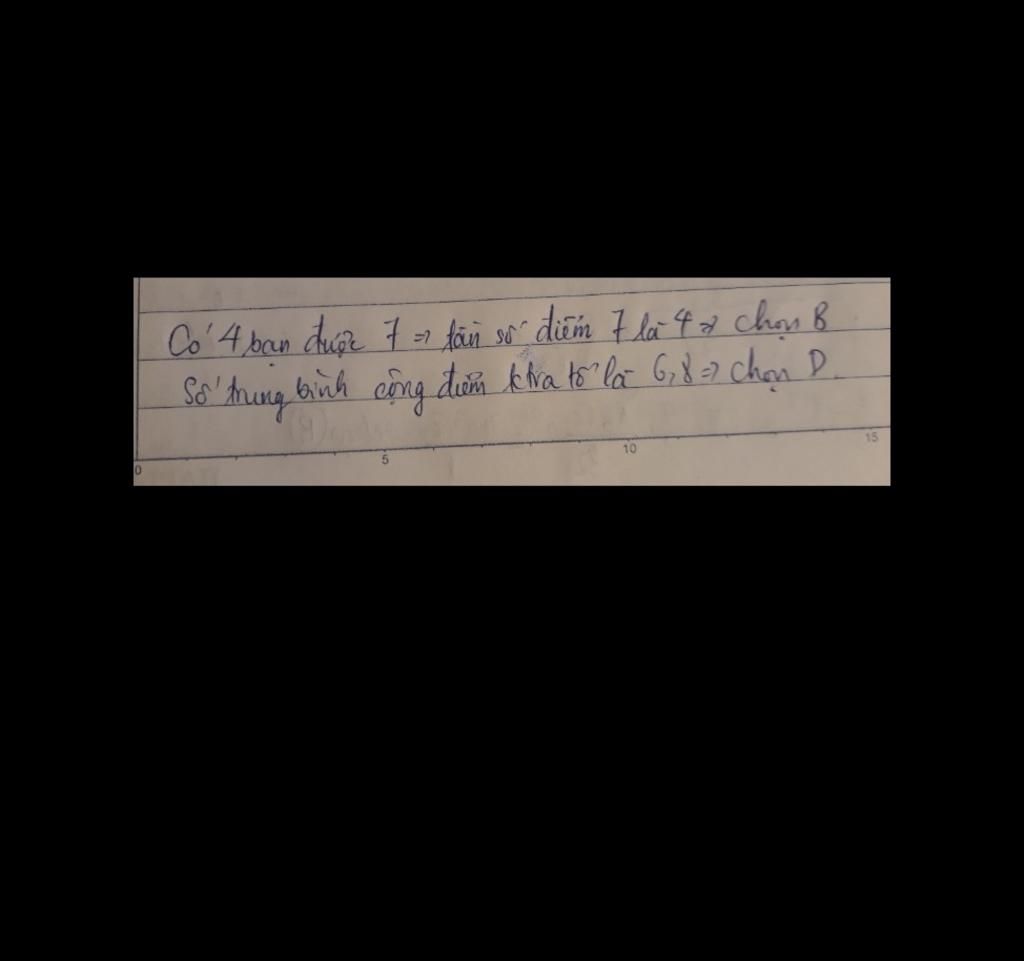 Có 4 bạn được 7 => tần số điểm 7 là 4 => chọn B
Số trung bình cộng điểm ktra tổ là 6,8 => chọn D.
0 5 10 15